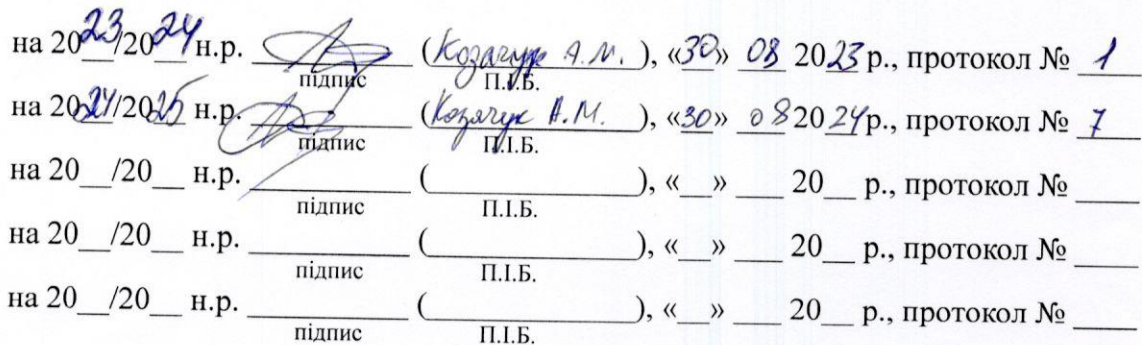 на 2023/2024 н.р. ________ (Козачук А.М.), «30» 08 2023 р., протокол № 1
підпис П.І.Б.
на 2024/2025 н.р. ________ (Козачук А.М.), «30» 08 2024 р., протокол № 7
підпис П.І.Б.
на 20__/20__ н.р. ____________ (______________), «__» ___ 20__ р., протокол № ____
підпис П.І.Б.
на 20__/20__ н.р. ____________ (______________), «__» ___ 20__ р., протокол № ____
підпис П.І.Б.
на 20__/20__ н.р. ____________ (______________), «__» ___ 20__ р., протокол № ____
підпис П.І.Б.